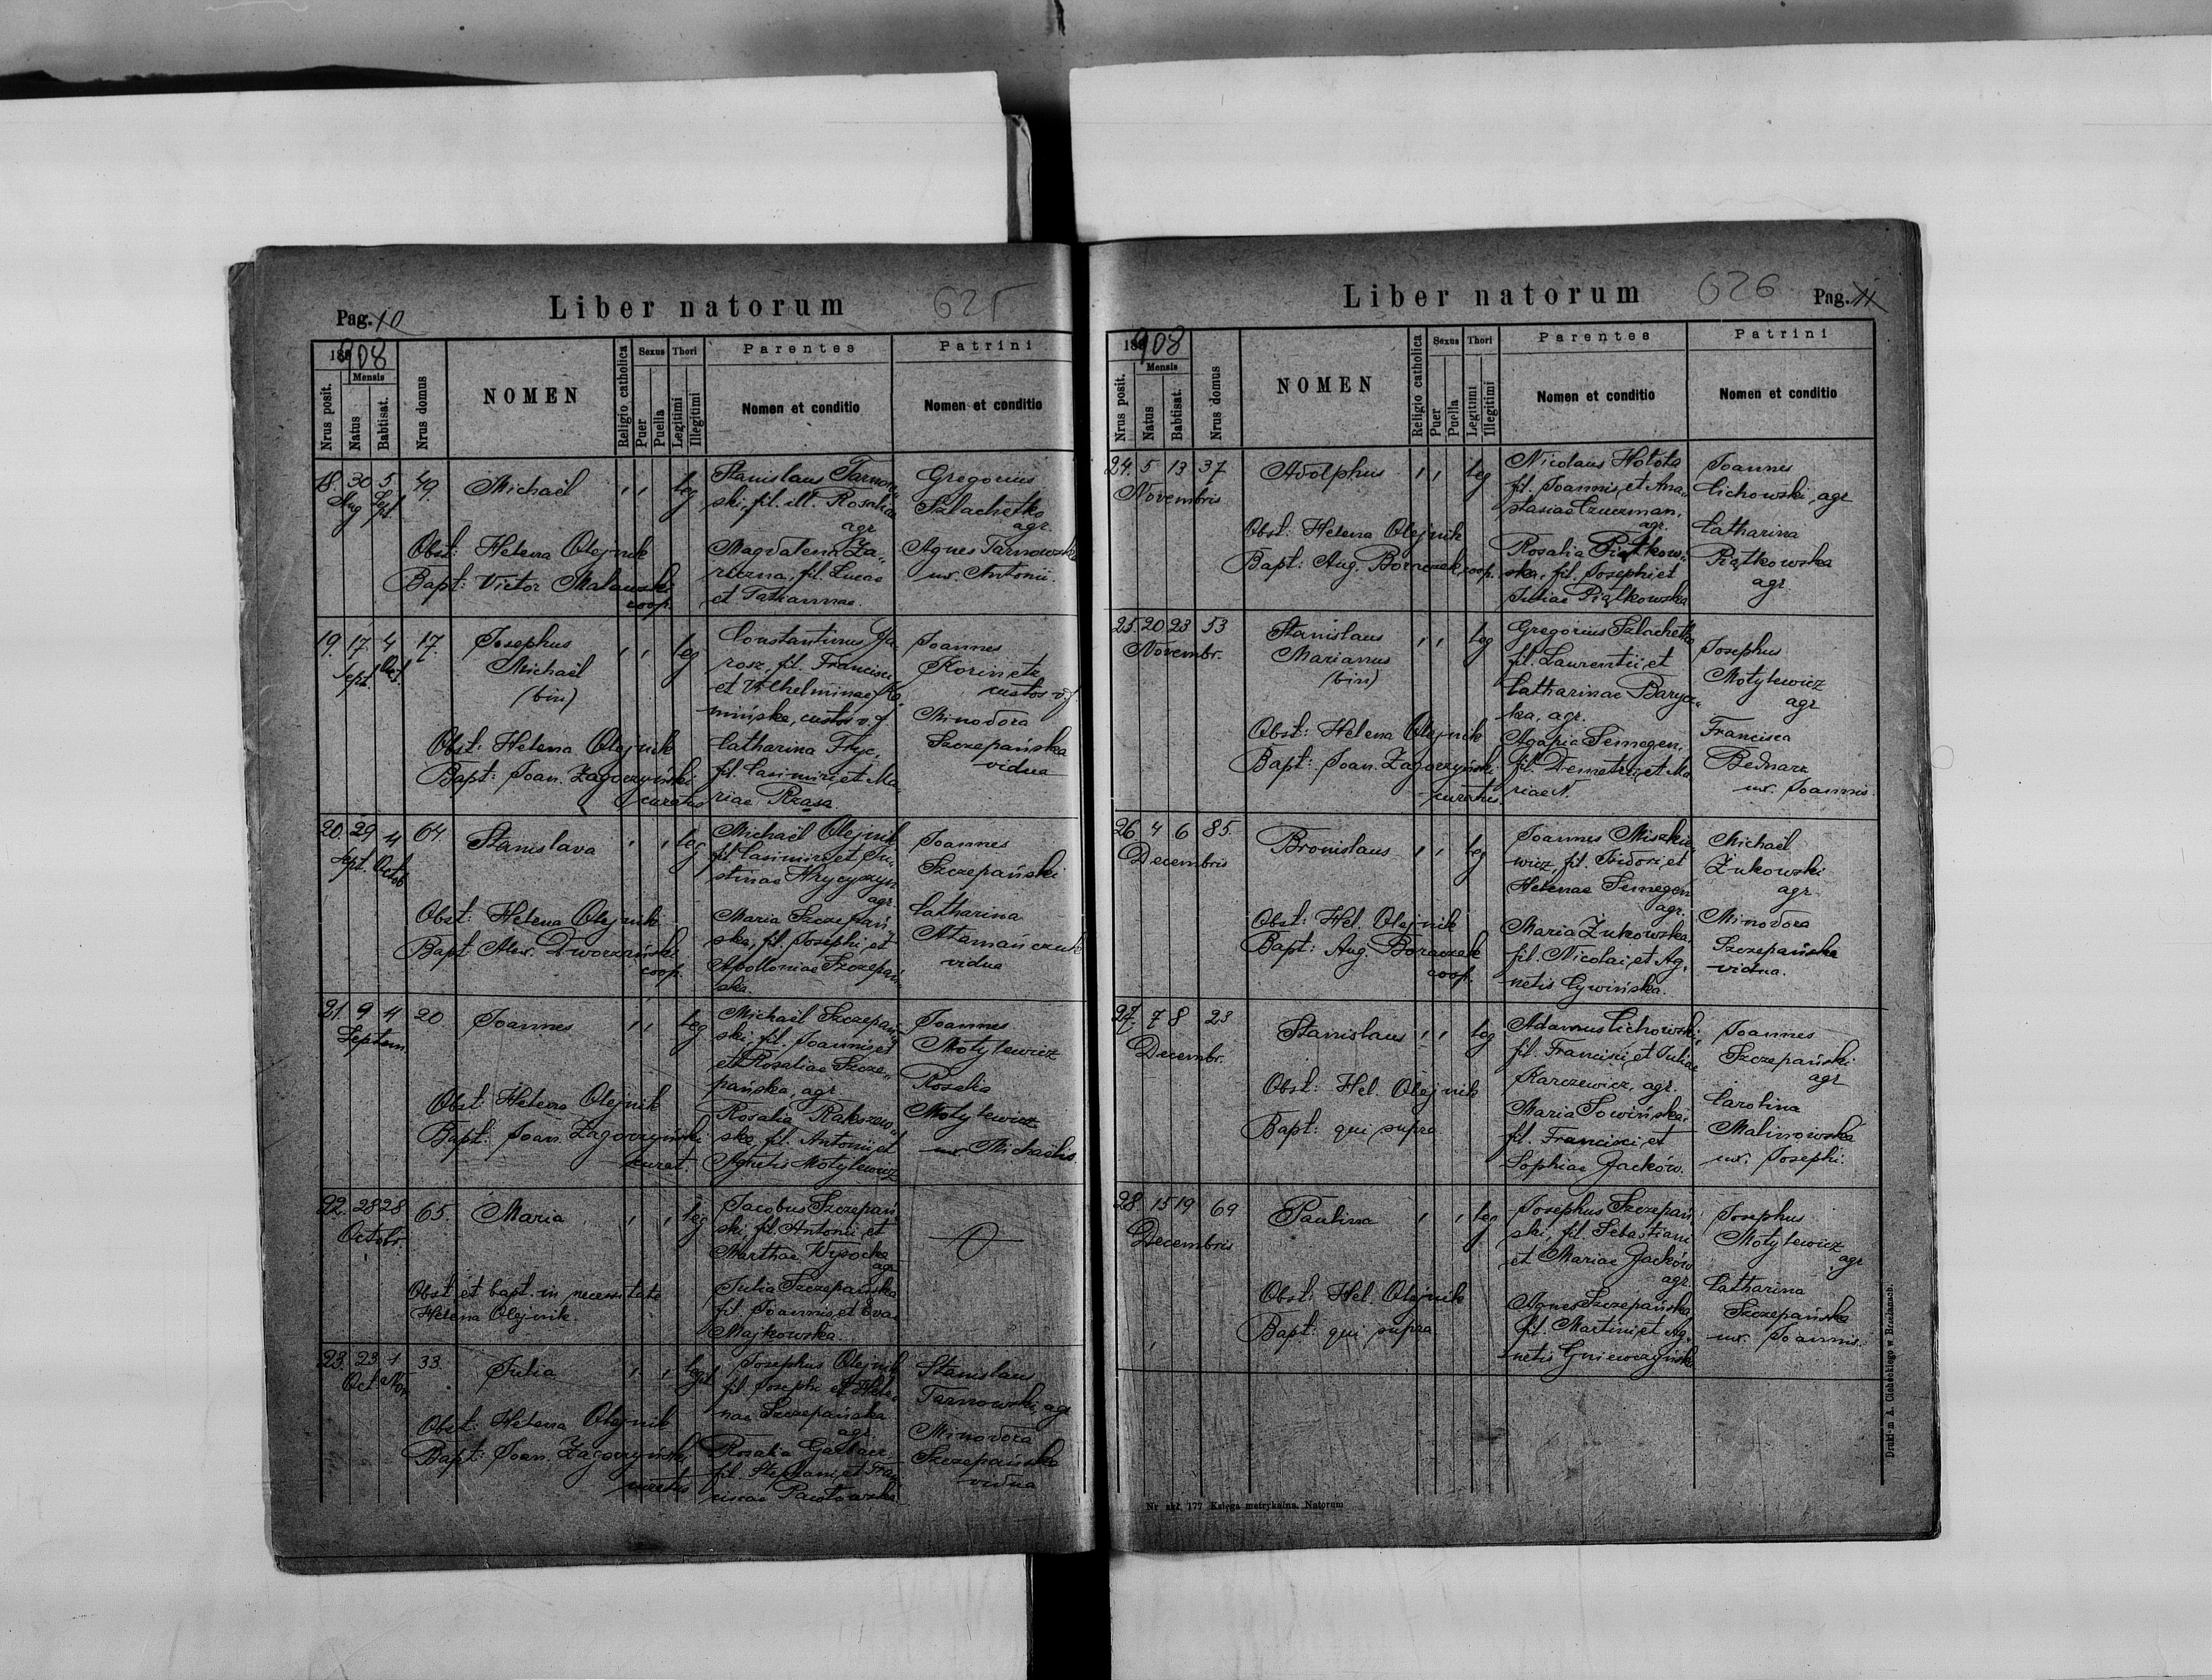 Pag. 10
Liber natorum
625
1908
Nrus posit.
Mensis
Natus
Babtisat.
Nrus domus
NOMEN
Religio catholica
Sexus
Puer
Puella
Thori
Legitimi
Illegitimi
Parentes
Nomen et conditio
Patrini
Nomen et conditio
18. 30 5 49. Michaël , , leg
Aug Sept
Stanislaus Tarnow„
ski, fil. ill. Rosaliae
agr.
Magdalena Za„
riczna, fil. Lucae
et Tatiannae.
Gregorius
Szlachetko
agr.
Agnes Tarnowska
ux. Antonii.
Obst: Helena Olejnik
Bapt: Victor Malawski
coop.
19. 17. 4 17. Josephus , , leg
Sept. Oct. Michaël
(bin)
Constantinus Ja„
rosz, fil. Francisci
et Wilhelminae Ka„
mińska, custos v. f
Catharina Fryc,
fil. Casimiri et Ma„
riae Rząsa.
Joannes
Korinetz
custos v f.
Minodora
Szczepańska
vidua
Obst: Helena Olejnik
Bapt: Joan. Zagorzyński
curatus
20. 29 4 64. Stanislava , , leg
Sept. Octob
Michaël Olejnik
fil. Casimiri et Ju„
stinae Hrycyszyn
agr.
Maria Szczepań„
ska, fil. Josephi et
Apolloniae Szczepań„
ska.
Joannes
Szczepański
Catharina
Atamańczuk
vidua
Obst: Helena Olejnik
Bapt Alex. Dworzański
coop.
21. 9 4 20 Joannes , , leg
Septem.
Michaël Szczepań„
ski, fil. Joannis et
et Rosaliae Szcze„
pańska, agr
Rosalia Rakszew„
ska, fil. Antonii et
Agnetis Motylewicz
Joannes
Motylewicz
Rosalia
Motylewicz
ux. Michaëlis.
Obst: Helena Olejnik
Bapt: Joan. Zagorzyński
curat.
22. 28 28 65. Maria , , leg
Octobr.
Jacobus Szczepań„
ski, fil. Antonii et
Marthae Wysocka
agr
Julia Szczepańska
fil. Joannis et Eva
Majkowska.
Obst. et bapt. in necessitate
Helena Olejnik.
23. 23 1 33. Julia , , leg
Oct Nov
Josephus Olejnik
fil. Josephi et Hele„
nae Szczepańska
agr.
Rosalia
fil. Stephani et Fran„
ciscae Pawłowska
Stanislaus
Tarnowski, agr
Minodora
Szczepańska
vidua
Obst: Helena Olejnik
Bapt: Joan. Zagorzyński
curatus
Liber natorum
626
Pag. 11
1908
Nrus posit.
Mensis
Natus
Babtisat.
Nrus domus
NOMEN
Religio catholica
Sexus
Puer
Puella
Thori
Legitimi
Illegitimi
Parentes
Nomen et conditio
Patrini
Nomen et conditio
24. 5 13 37 Adolphus , , leg
Novembris
Nicolaus Hołota
fil. Joannis, et Ana„
stasiae Czuczman,
agr.
Rosalia Piątkow„
ska, fil. Josephi et
Juliae Piątkowska
Joannes
Cichowski, agr
Catharina
Piątkowska
agr.
Obst: Helena Olejnik
Bapt: Aug. Boraczek, coop.
25. 20 23 53 Stanislaus , , leg
Novembr. Marianus
(bin)
Gregorius Szlachetko
fil. Laurentii et
Catharinae Barycz„
ka, agr.
Agapia Semegen,
fil. Demetri, et Ma
riae N.
Josephus
Motylewicz
agr
Francisca
Bednarz
ux. Joannis.
Obst: Helena Olejnik
Bapt: Joan. Zagorzyński
curatus.
26 4 6 85. Bronislaus , , leg
Decembris
Joannes Miszkie„
wicz, fil. Isidori, et
Helenae Semegen
agr.
Maria Żukowska,
fil. Nicolai, et Ag„
netis Cywińska.
Michaël
Żukowski
agr.
Minodora
Szczepańska
vidua.
Obst: Hel. Olejnik
Bapt: Aug. Boraczek
coop.
27. 7 8 23 Stanislaus , , leg
Decembr.
Adamus Cichowski,
fil. Francisci, et Juliae
Karczewicz, agr.
Maria Sowińska,
fil. Francisci, et
Sophiae Jacków.
Joannes
Szczepański
agr
Carolina
Malinowska
ux. Josephi.
Obst: Hel. Olejnik
Bapt: qui supra
28. 15 19 69 Paulina , , leg
Decembris
Josephus Szczepań„
ski, fil. Sebastiani
et Mariae Jacków
agr.
Agnes Szczepańska
fil. Martini, et Ag„
netis Gniewczyńska
Josephus
Motylewicz
agr
Catharina
Szczepańska
ux. Joannis.
Obst: Hel. Olejnik
Bapt: qui supra
Nr skł. 177 Księga metrykalna. Natorum
Drukiem A. Cichockiego w Brzeżanach.